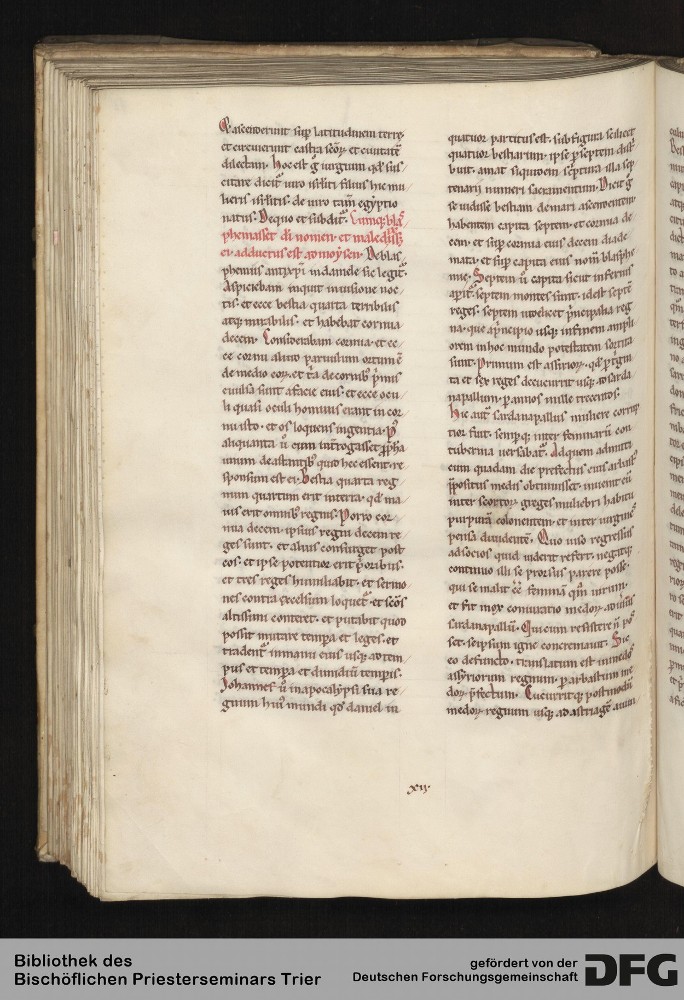 Et ascenderunt sup latitudinem terre.
et circuierunt castra scōꝝ. et ciuitatē
dilectam. hoc est g̊ iurgium qd sus
citare dicit᷑ uiro isrl̄iti filius hic mu
lieris isrl̄itis. de uiro tam̄ egyptio
natus. De quo et subdit᷑. Cumq; bla
phemasset dī nomen. et maledixiss;
ei. adductus est ad moysen. De blas
phemiis antixp̄i in daniele sic legit᷑.
Aspiciebam inquit in uisione noc
tis. et ecce bestia quarta terribilis
atq; mirabilis. et habebat cornua
decem. Considerabam cornua. et ec
ce cornu aliud paruulum ortum ē
de medio eoꝝ. et tria de cornib; p̄mis
euulsa sunt a facie eius. et ecce ocu
li quasi oculi hominis erant in cor
nu isto. et os loquens ingentia. Pꝰ
aliquanta ū cum int̄rogasset ꝓph̄a
unum de astantib; quid hec essent. re
sponsum est ei. Bestia quarta reg
num quartum erit in terra. qd ma
ius erit omnib; regnis. Porro cor
nua decem. ipsius regni decem re
ges sunt. et alius consurget post
eos. et ipse potentior erit p̄orib;.
et tres reges humiliabit. et sermo
nes contra excelsum loquet᷑. et scōs
altissimi conteret. et putabit quod
possit mutare tempora et leges. et
tradent᷑ in manu eius usq; ad tem
pus et tempora et dimidiū temporis.
Johannes ū in apocalypsi sua re
gnum huiꝰ mundi qd daniel in
quatuor partitus est. sub figura scilicet
quatuor bestiarum. ipse p̄ septem dist
buit. amat siquidem scriptura illa sep
tenarij numeri sacramentum. Dicit g̊
se uidisse bestiam de mari ascendentem.
habentem capita septem. et cornua de
cem. et sup cornua eius decem diade
mata. et sup capita eius nom̄ blasphe
mie. Septem ū capita sicut inferius
ap̄it. septem montes sunt. idest septē
reges. septem uidelicet p̄ncipalia reg
na. que a p̄ncipio usq; in finem ampli
orem in hoc mundo potestatem sortita
sunt. Primum est assirioꝝ. qd p̄ t̓gin
ta et sex reges decucurrit usq; ad sarda
napallum. p̄ annos mille trecentos.
Hic aut᷑ sardanapallus muliere corrup
tior fuit. semp̄q; inter feminarū con
tubernia uersabat᷑. Ad quem admitti
cum quadam die prefectus eius arbastꝰ
p̄positus medis obtinuisset. inuenit eū
inter scortoꝝ greges muliebri habitu
purpurā colonentem. et inter uirgines
pensa diuidentē. Quo uiso regressus
ad socios quid uiderit refert. negatq;
continuo illi se prorsus parere posse.
qui se malit eē feminā qm̄ uirum.
et fit mox coniuratio medoꝝ. aduersus
sardanapallū. Qui cum resistere n̄ pos
set. seipsum igne concremauit. Sic
eo defuncto. translatum est in medos
assyriorum regnum. p̄ arbastum me
doꝝ p̄fectum. Cucurritq; postmodū
medoꝝ regnum usq; ad astiagē auum
xij.
Bibliothek des
Bischöflichen Priesterseminars Trier
gefördert von der
Deutschen Forschungsgemeinschaft
DFG